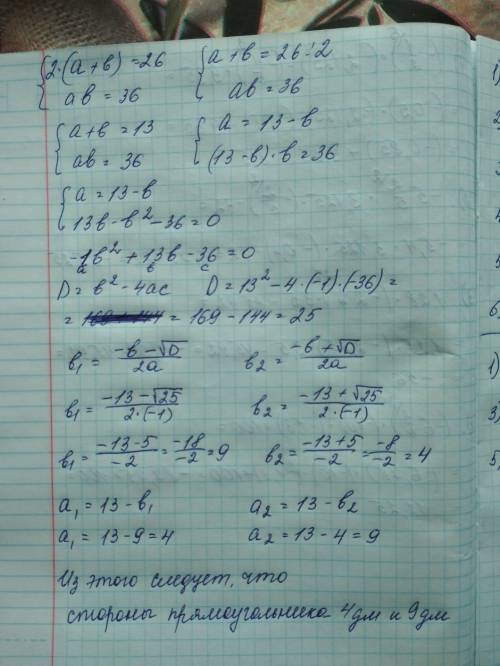 {2·(a+в)=26 {a+в=26÷2
ав=36 ав=36
{a+в=13 {a=13-в
ав=36 (13-в)·в=36
{a=13-в
13в-в²-36=0
-1в²+13в-36=0
a в c
D=в²-4ac D=13²-4·(-1)·(-36)=
= 169-144 = 169-144=25
в₁=(-в-√D)/2a в₂=(-в+√D)/2a
в₁=(-13-√25)/2·(-1) в₂=(-13+√25)/2·(-1)
в₁=(-13-5)/-2=-18/-2=9 в₂=(-13+5)/-2=-8/-2=4
a₁=13-в₁ a₂=13-в₂
a₁=13-9=4 a₂=13-4=9
Из этого следует, что
стороны прямоугольника 4дм и 9дм
1)
2
3
4
5
6
1)
3)
5)